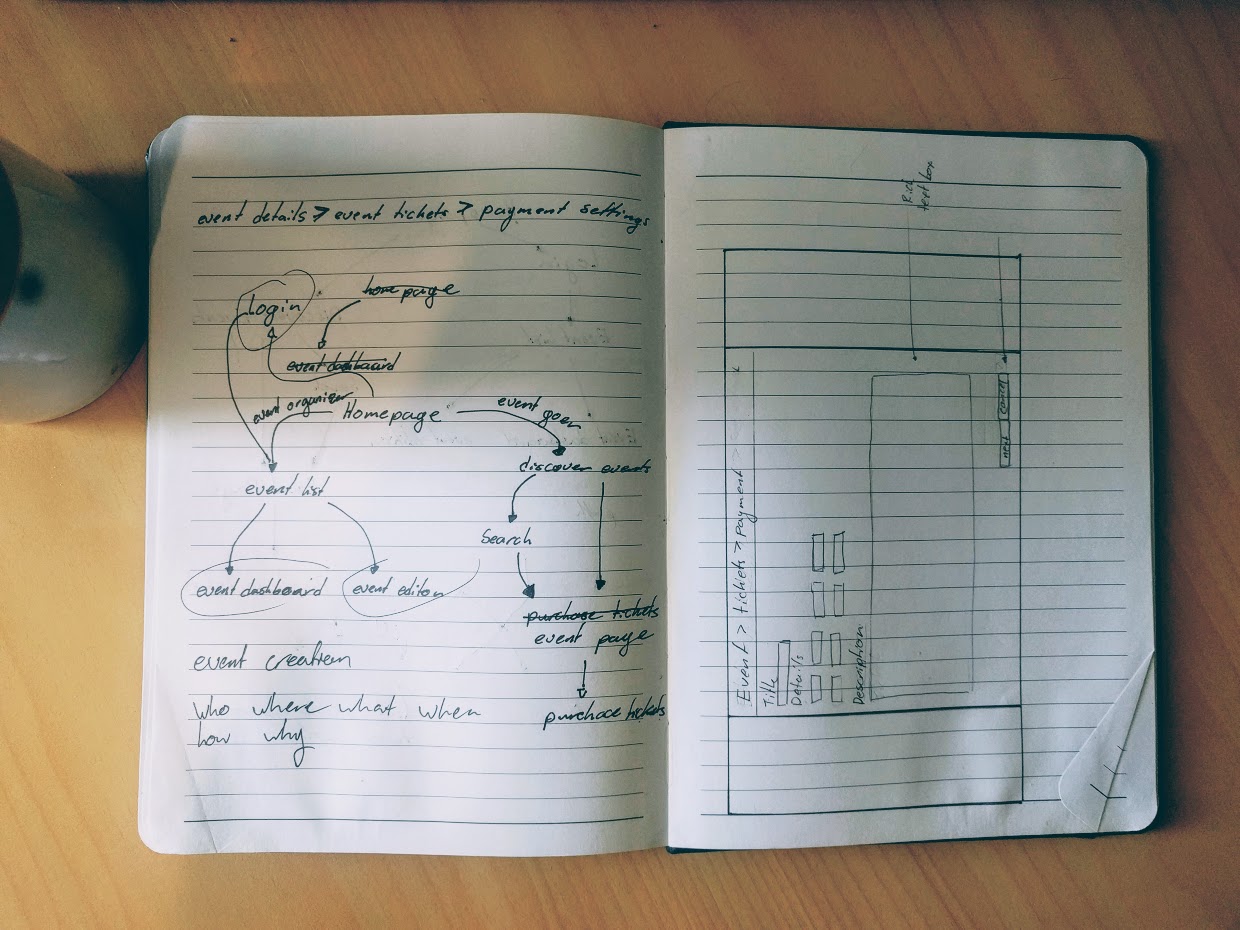 event details > event tickets > payment settings
Login
home page
event dashboard
event organiser
Homepage
event goer
discover events
event list
Search
event dashboard
event editor
purchase tickets
event page
event creation
who where what when
how why
purchace tickets
Rich
text box
Event > tickets > payment >
Title
Details
Description
next
cancel